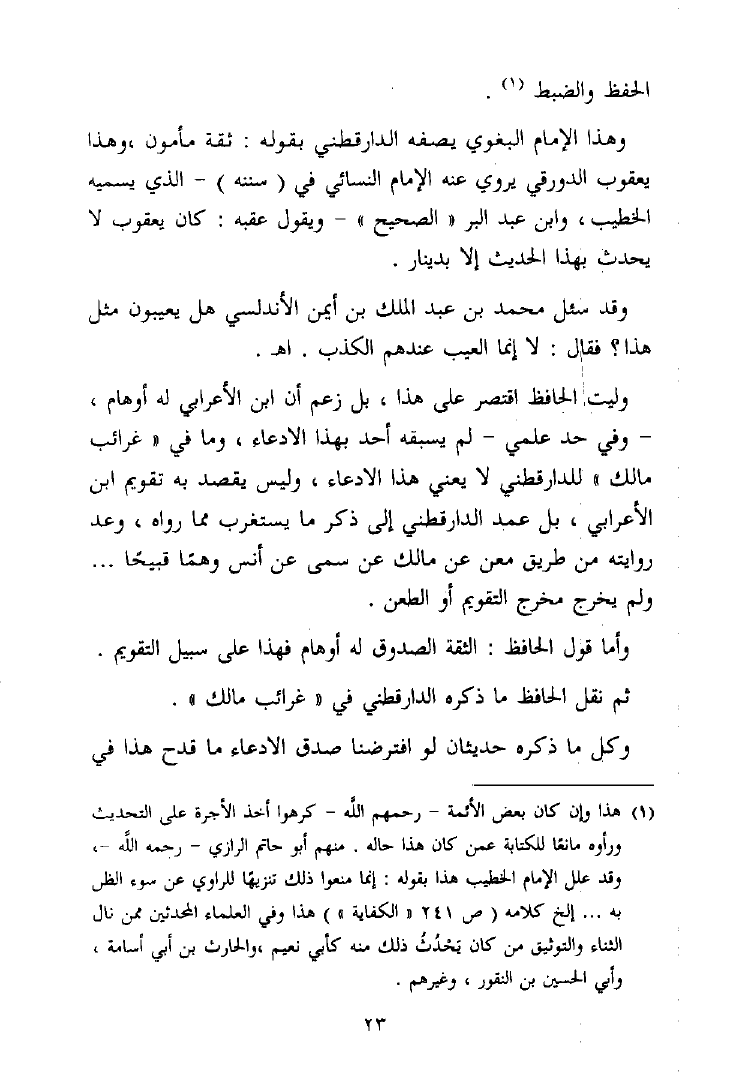 الحفظ والضبط (١) .
وهذا الإمام البغوي يصفه الدارقطني بقوله : ثقة مأمون ،وهذا
يعقوب الدورقي يروي عنه الإمام النسائي في ( سننه ) – الذي يسميه
الخطيب ، وابن عبد البر « الصحيح » – ويقول عقبه : كان يعقوب لا
يحدث بهذا الحديث إلا بدينار .
وقد سئل محمد بن عبد الملك بن أيمن الأندلسي هل يعيبون مثل
هذا ؟ فقال : لا إنما العيب عندهم الكذب . اهـ .
وليت الحافظ اقتصر على هذا ، بل زعم أن ابن الأعرابي له أوهام ،
– وفي حد علمي – لم يسبقه أحد بهذا الادعاء ، وما في « غرائب
مالك » للدارقطني لا يعني هذا الادعاء ، وليس يقصد به تقويم ابن
الأعرابي ، بل عمد الدارقطني إلى ذكر ما يستغرب مما رواه ، وعد
روايته من طريق معن عن مالك عن سمى عن أنس وهمًا قبيحًا ...
ولم يخرج مخرج التقويم أو الطعن .
وأما قول الحافظ : الثقة الصدوق له أوهام فهذا على سبيل التقويم .
ثم نقل الحافظ ما ذكره الدارقطني في « غرائب مالك » .
وكل ما ذكره حديثان لو افترضنا صدق الادعاء ما قدح هذا في
(١) هذا وإن كان بعض الأئمة – رحمهم الله – كرهوا أخذ الأجرة على التحديث
ورأوه مانعًا للكتابة عمن كان هذا حاله . منهم أبو حاتم الرازي – رحمه الله –،
وقد علل الإمام الخطيب هذا بقوله : إنما منعوا ذلك تنزيهًا للراوي عن سوء الظن
به ... إلخ كلامه ( ص ٢٤١ « الكفاية » ) هذا وفي العلماء المحدثين ممن نال
الثناء والتوثيق من كان يَحْدُثُ ذلك منه كأبي نعيم ،والحارث بن أبي أسامة ،
وأبي الحسين بن النقور ، وغيرهم .
٢٣